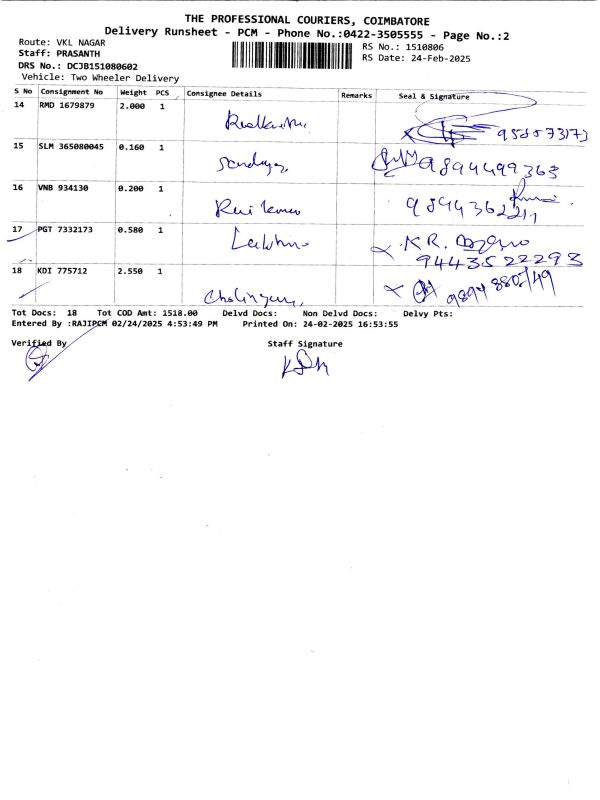 THE PROFESSIONAL COURIERS, COIMBATORE
Delivery Runsheet - PCM - Phone No.:0422-3505555 - Page No.:2
Route: VKL NAGAR
RS No.: 1510806
Staff: PRASANTH
RS Date: 24-Feb-2025
DRS No.: DCJB151080602
Vehicle: Two Wheeler Delivery
S No Consignment No Weight PCS Consignee Details Remarks Seal & Signature
14 RMD 1679879 2.000 1
15 SLM 365080045 0.160 1
9894499363
16 VNB 934130 0.200 1
17 PGT 7332173 0.580 1
K R.
9443522293
18 KDI 775712 2.550 1
Tot Docs: 18 Tot COD Amt: 1518.00 Delvd Docs: Non Delvd Docs: Delvy Pts:
Entered By :RAJIPCM 02/24/2025 4:53:49 PM Printed On: 24-02-2025 16:53:55
Verified By Staff Signature